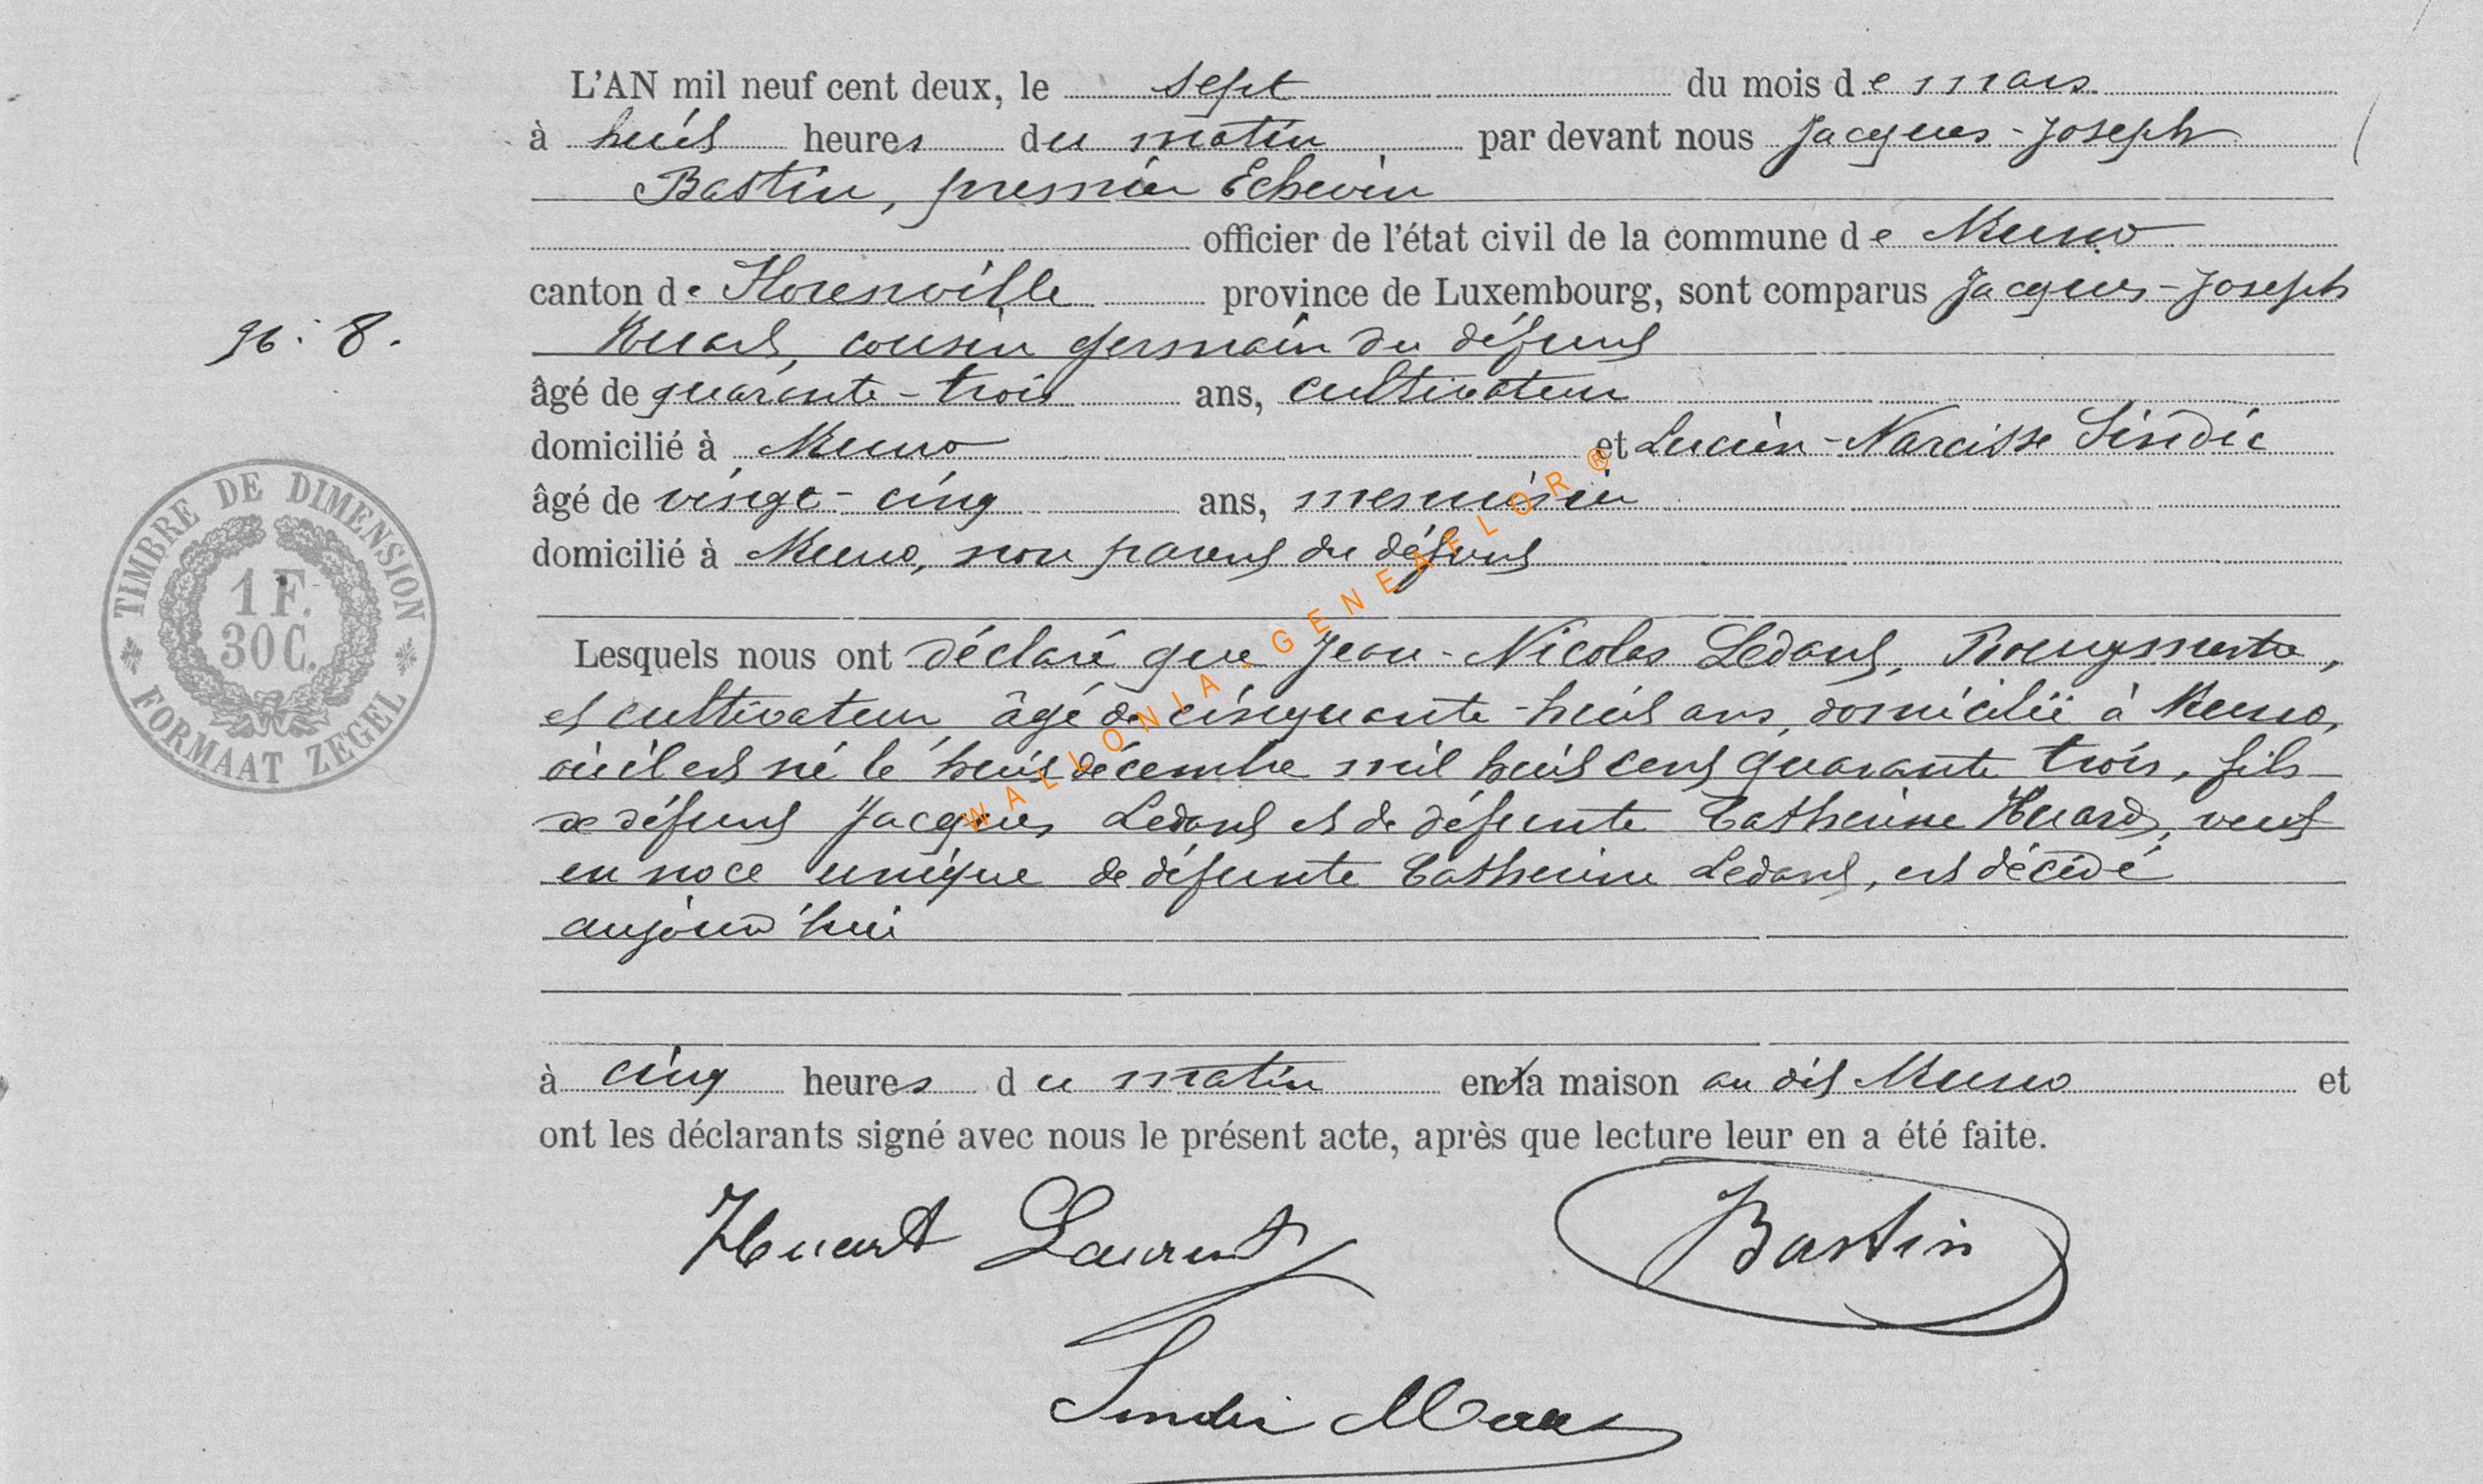 L'AN mil neuf cent deux, le sept du mois de mars
à huit heures du matin par devant nous Jacques-Joseph
Bastin, premier Echevin
officier de l'état civil de la commune de Muno
canton de Florenville province de Luxembourg, sont comparus Jacques-Joseph
Huart, cousin germain du défunt
N°: 8.
âgé de quarante-trois ans, cultivateur
domicilié à Muno et Lucien-Narcisse Sindic
âgé de vingt-cinq ans, menuisier
domicilié à Muno, non parent du défunt
TIMBRE DE DIMENSION
1 F.
30 C.
FORMAAT ZEGEL
Lesquels nous ont déclaré que Jean-Nicolas Ledant, Bourgmestre,
et cultivateur, âgé de cinquante-huit ans, domicilié à Muno,
où il est né le huit décembre mil huit cent quarante trois, fils
de défunt Jacques Ledant et de défunte Catherine Huard, veuf
en noce unique de défunte Catherine Ledant, est décédé
aujourd'hui
à cinq heures du matin en sa maison au dit Muno et
ont les déclarants signé avec nous le présent acte, après que lecture leur en a été faite.
Huart Laurent Bastin
Sindic
WALLONIA-GENEAFLOR ®